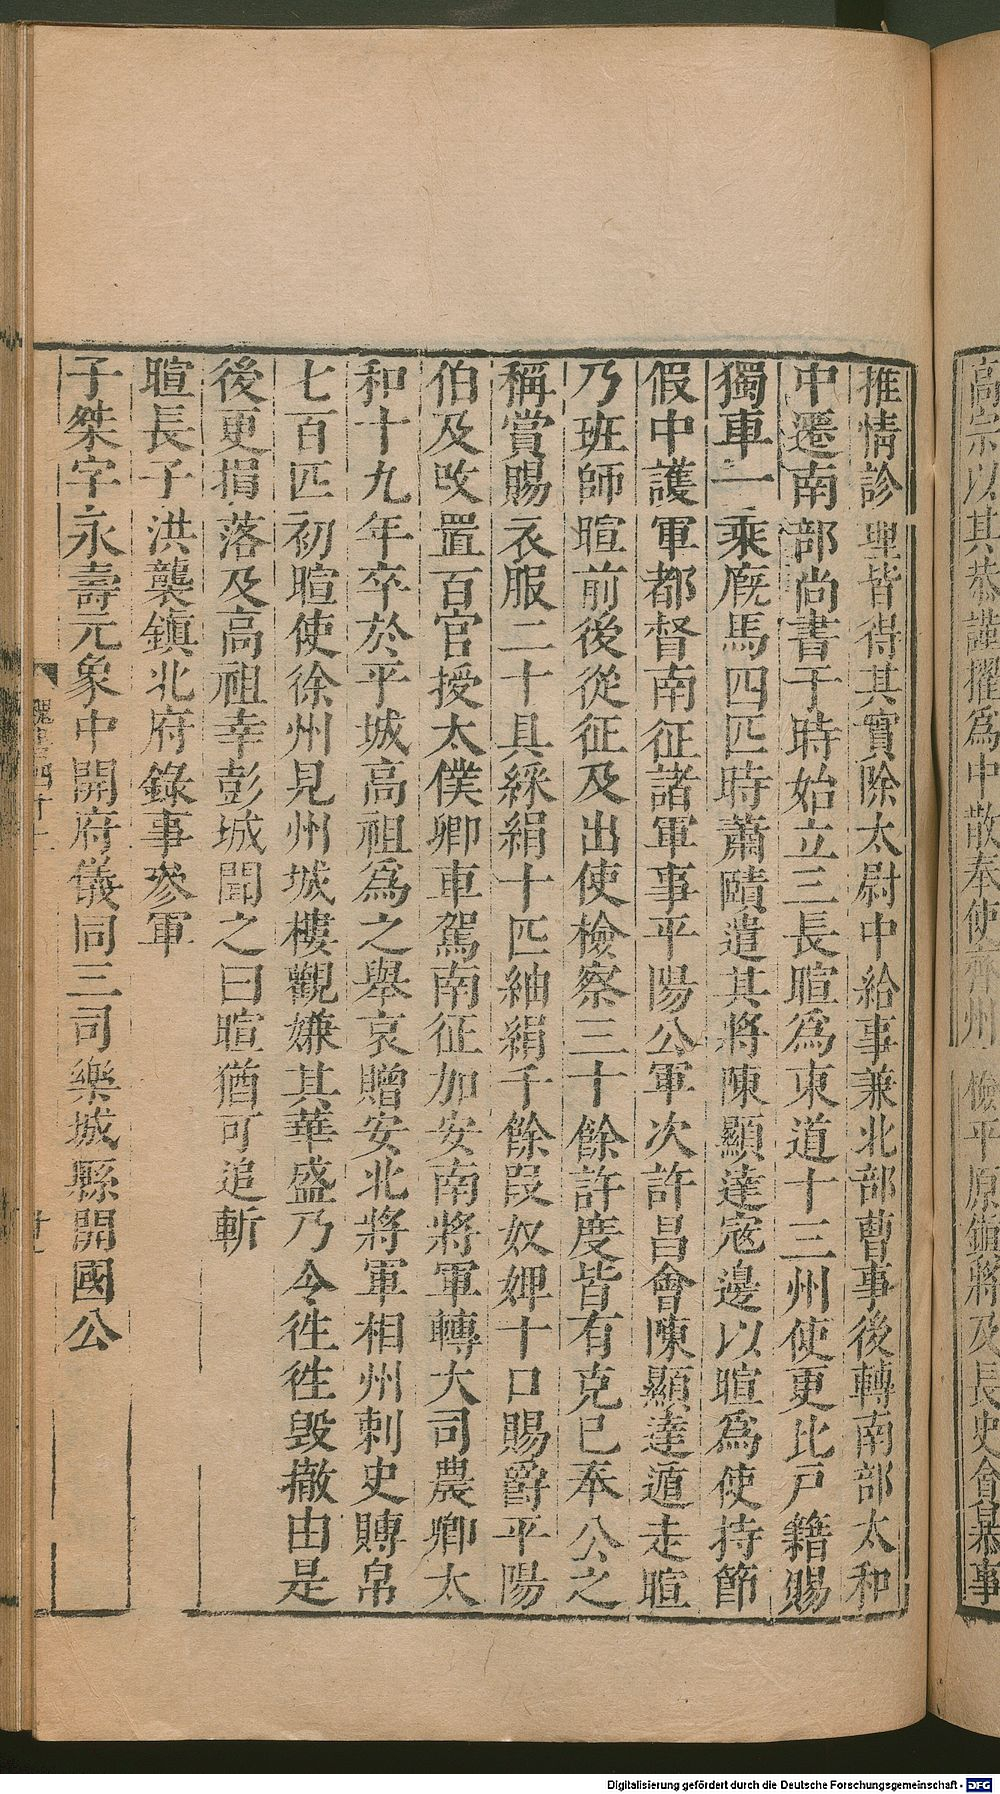 高宗以其恭謹擢爲中散奉使齊州檢平原鎮將及長史貪暴事
推情診理皆得其實除太尉中給事兼北部曹事後轉南部太和
中遷南部尚書于時始立三長暄爲東道十三州使更比戸籍賜
獨車一乘廐馬四匹時蕭賾遣其將陳顯達寇邊以暄爲使持節
假中護軍都督南征諸軍事平陽公軍次許昌會陳顯達遁走暄
乃班師暄前後從征及出使檢察三十餘許度皆有克巳奉公之
稱賞賜衣服二十具綵絹十匹紬絹千餘叚奴婢十口賜爵平陽
伯及攺置百官授太僕卿車駕南征加安南將軍轉大司農卿太
和十九年卒於平城高祖爲之舉哀贈安北將軍相州刺史賻帛
七百匹初暄使徐州見州城樓觀嫌其華盛乃令徃徃毁撤由是
後更損落及高祖幸彭城聞之曰暄猶可追斬
暄長子洪襲鎮北府錄事參軍
子桀字永壽元象中開府儀同三司樂城縣開國公
魏書四十二
Digitalisierung gefördert durch die Deutsche Forschungsgemeinschaft - DFG